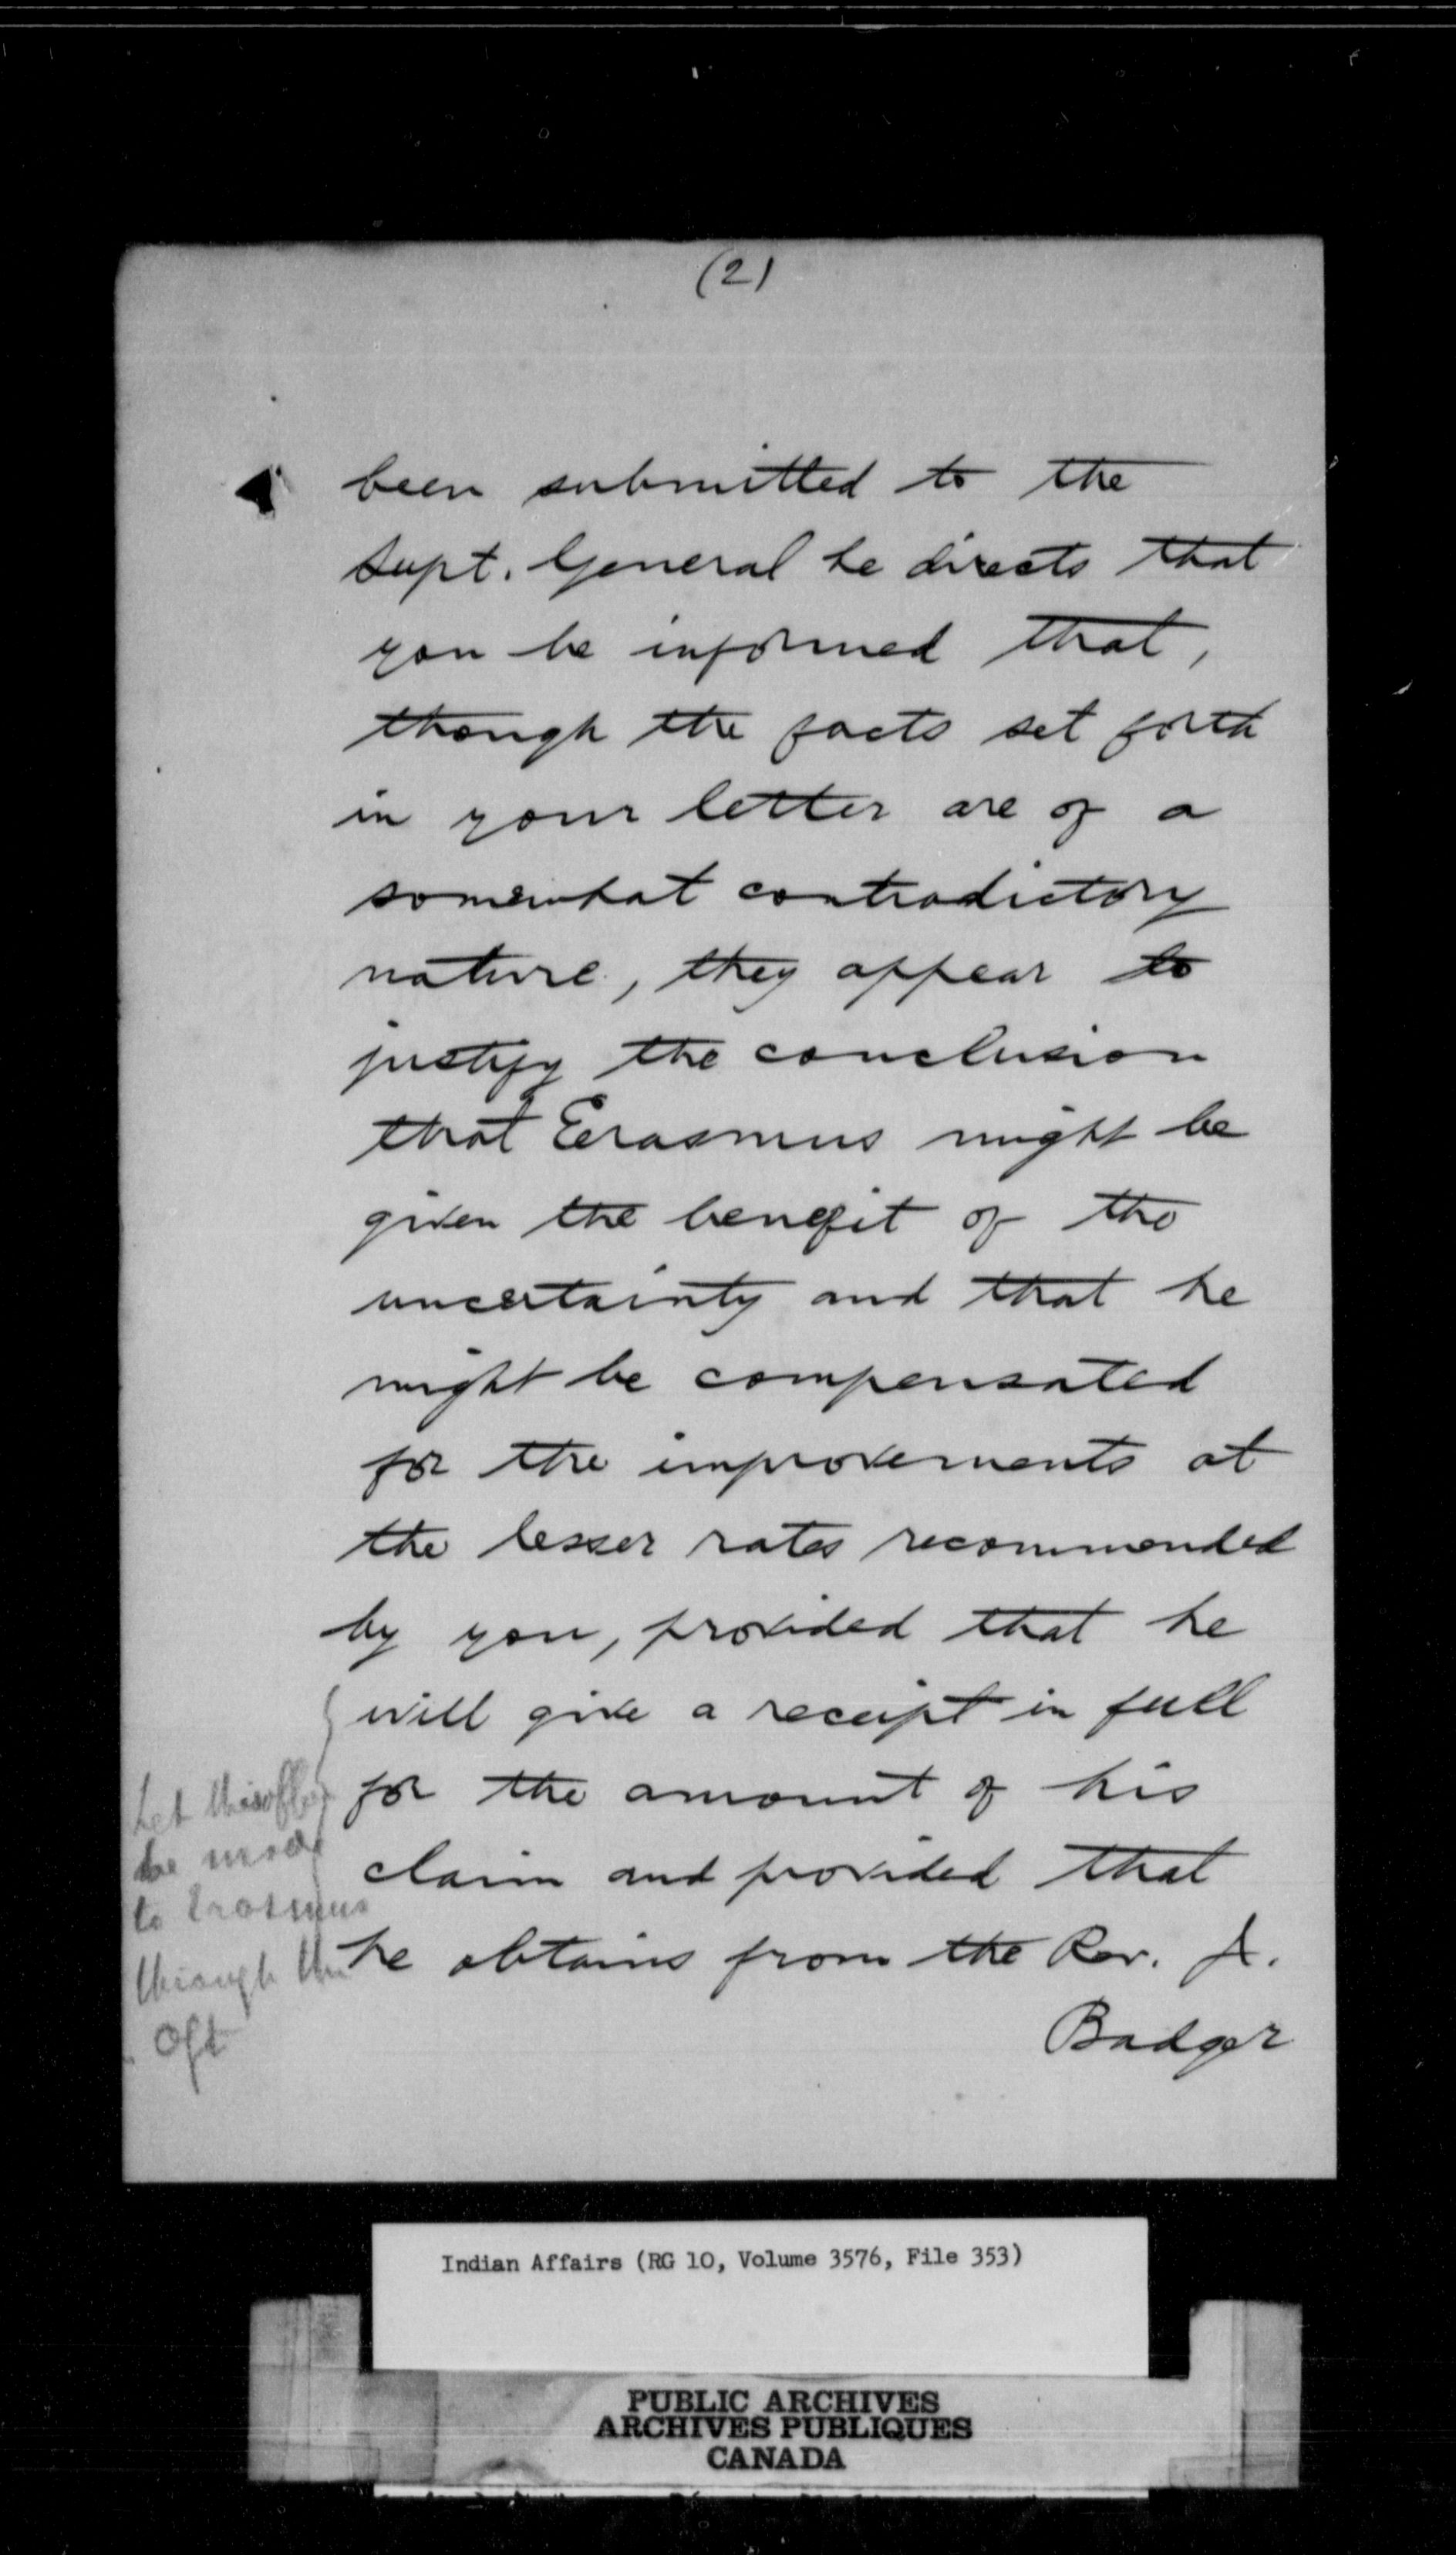 (2)
been submitted to the
Supt. General he directs that
you be informed that,
though the facts set forth
in your letter are of a
somewhat contradictory
nature, they appear to
justify the conclusion
that Erasmus might be
given the benefit of the
uncertainty and that he
might be compensated
for the improvements at
the lesser rates recommended
by you, provided that he
will give a receipt in full
for the amount of his
claim and provided that
he obtains from the Rev. J.
Badger
Let this offer
be made
to Erasmus
through the
Indian Affairs (RG 10, Volume 3576, File 353)
PUBLIC ARCHIVES
ARCHIVES PUBLIQUES
CANADA